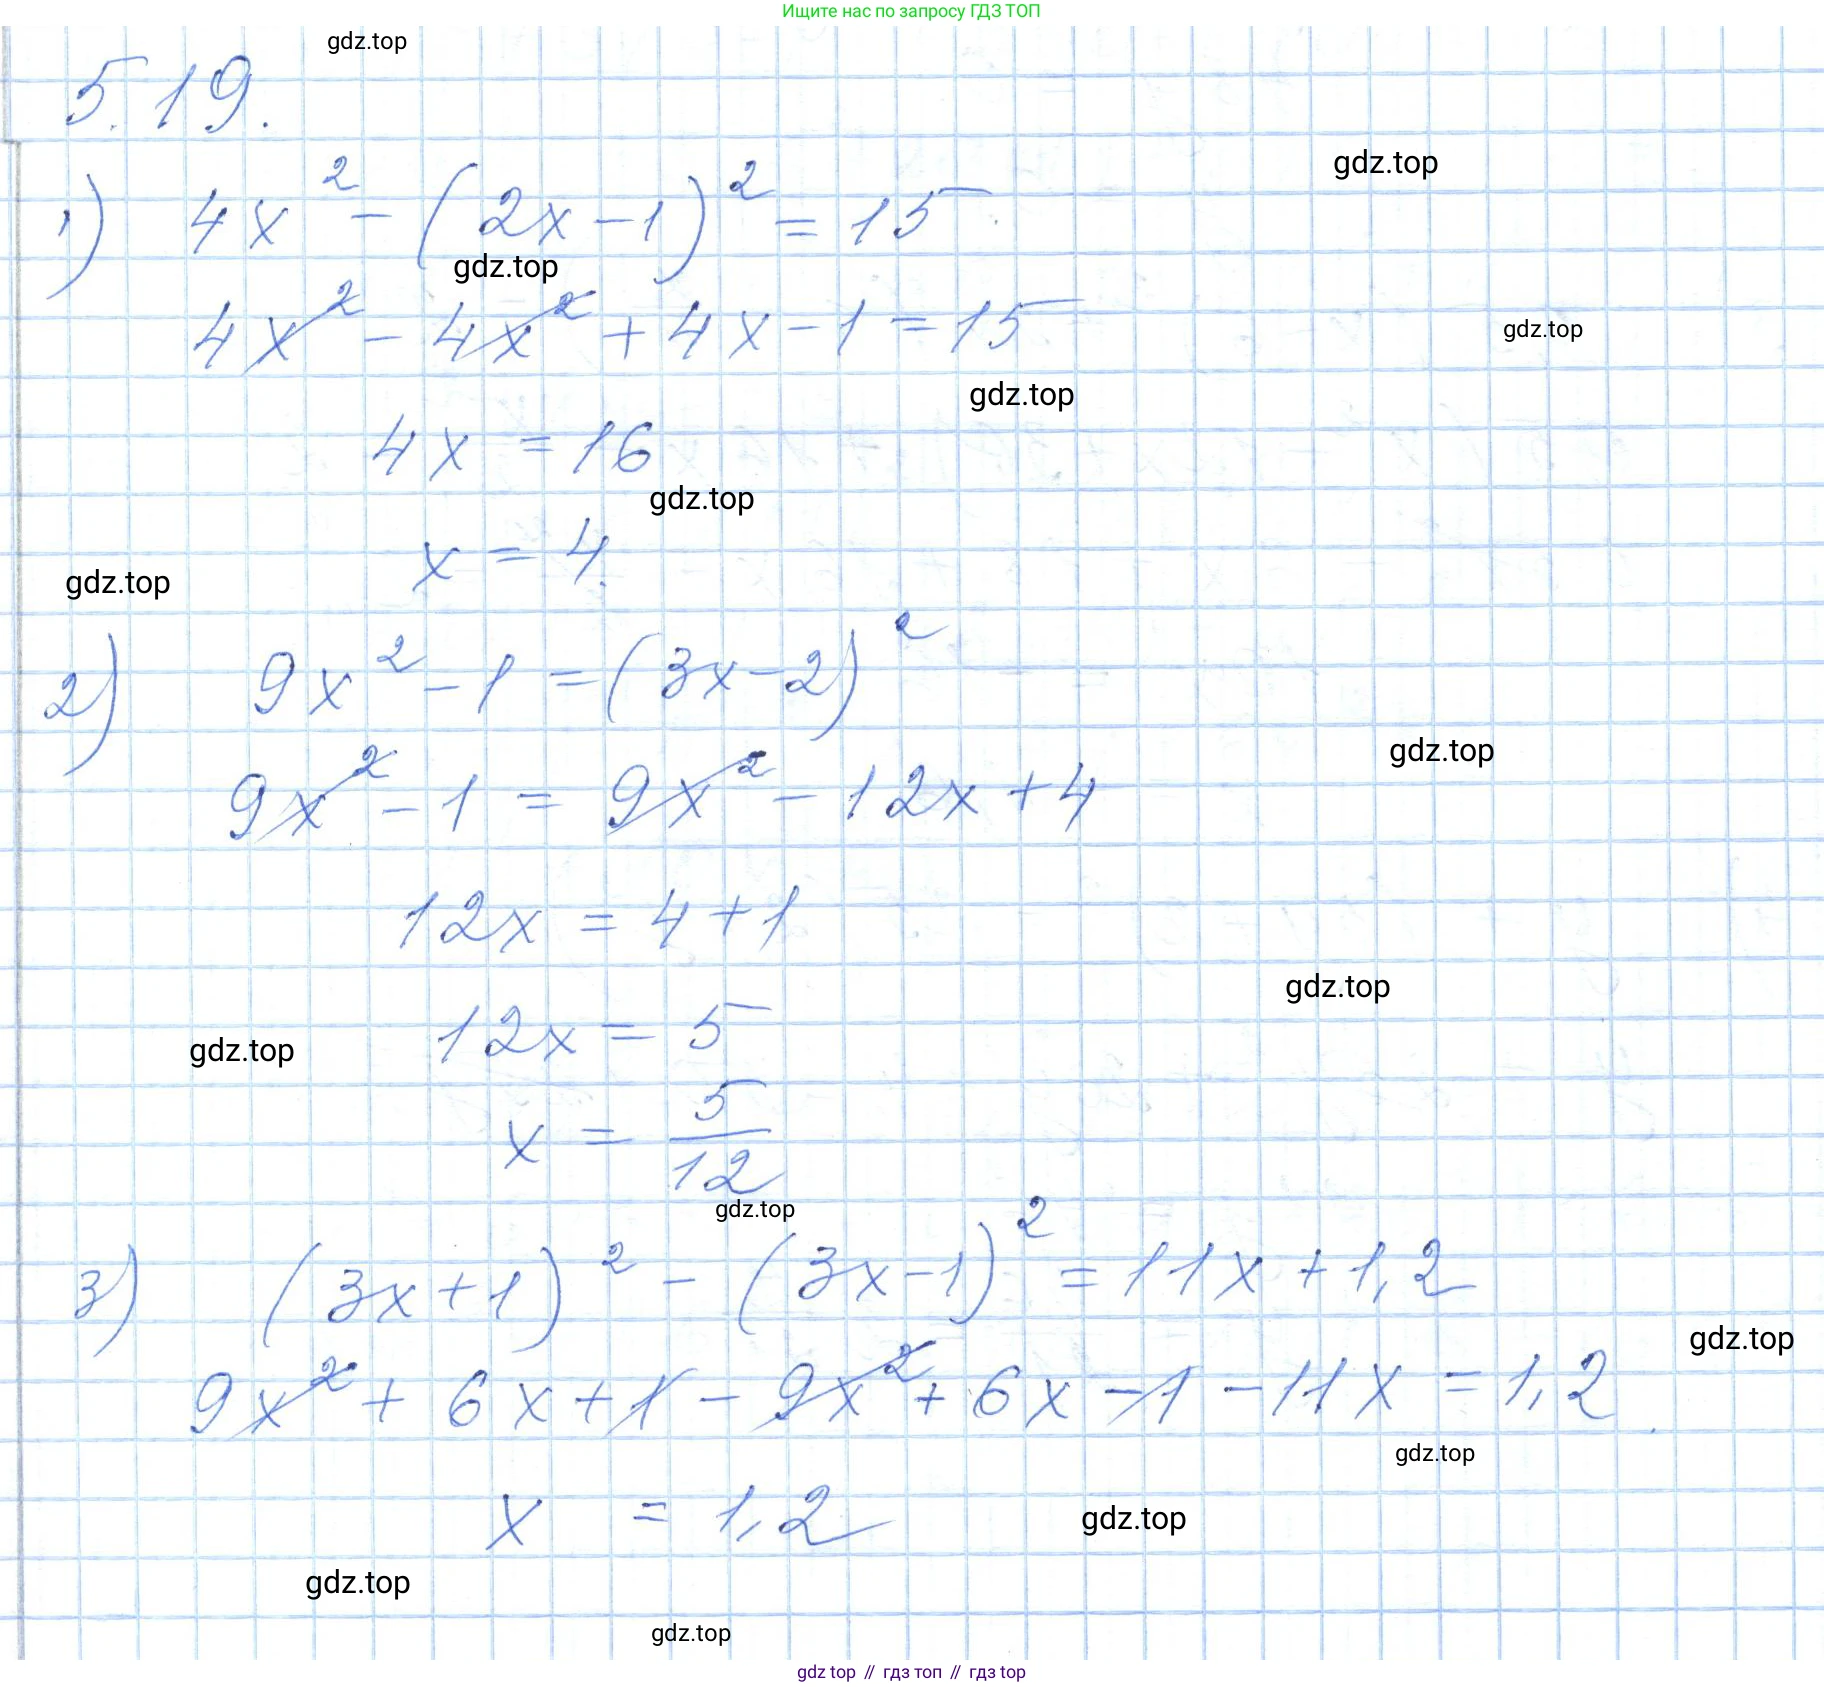 Ищите нас по запросу ГДЗ ТОП
gdz.top
5.19.
gdz.top
1) 4x² - (2x - 1)² = 15
gdz.top
4x² - 4x² + 4x - 1 = 15
gdz.top
gdz.top
4x = 16
gdz.top
x = 4.
gdz.top
2) 9x² - 1 = (3x - 2)²
gdz.top
9x² - 1 = 9x² - 12x + 4
12x = 4 + 1
gdz.top
12x = 5
gdz.top
x = 5/12
gdz.top
3) (3x + 1)² - (3x - 1)² = 11x + 1,2
gdz.top
9x² + 6x + 1 - 9x² + 6x - 1 - 11x = 1,2
gdz.top
x = 1,2
gdz.top
gdz.top
gdz.top
gdz top // гдз топ // гдз top